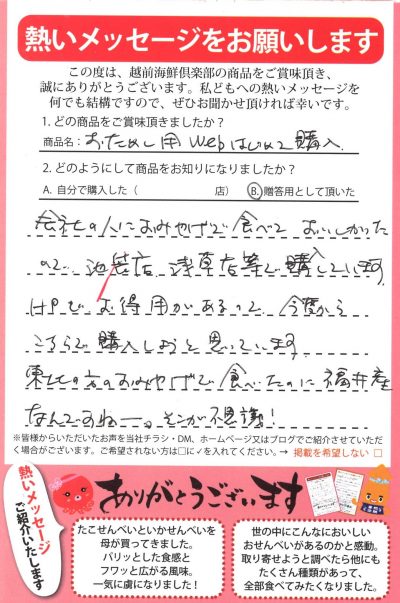 熱いメッセージをお願いします
この度は、越前海鮮倶楽部の商品をご賞味頂き、
誠にありがとうございます。私どもへの熱いメッセージを
何でも結構ですので、ぜひお聞かせ頂ければ幸いです。
1. どの商品をご賞味頂きましたか？
商品名：おためし用 Webはじめて購入
2. どのようにして商品をお知りになりましたか？
A. 自分で購入した（ 店） B.贈答用として頂いた
会社の人におみやげで食べて おいしかった
ので 池袋店 浅草店等で購入しています
HPで お得用があるので 今度から
こちらで購入しようと思っています
東北の方のおみやげで食べたのに 福井産
なんですねー。そこが不思議!
※皆様からいただいたお声を当社チラシ・DM、ホームページ又はブログでご紹介させていただ
く場合がございます。ご希望されない方は□に✓を入れてください。→ 掲載を希望しない □
熱いメッセージ
ご紹介いたします
ありがとうございます
たこせんべいといかせんべいを
母が買ってきました。
パリッとした食感と
フワッと広がる風味。
一気に虜になりました！
世の中にこんなにおいしい
おせんべいがあるのかと感動。
取り寄せようと調べたら他にも
たくさん種類があって、
全部食べてみたくなりました。